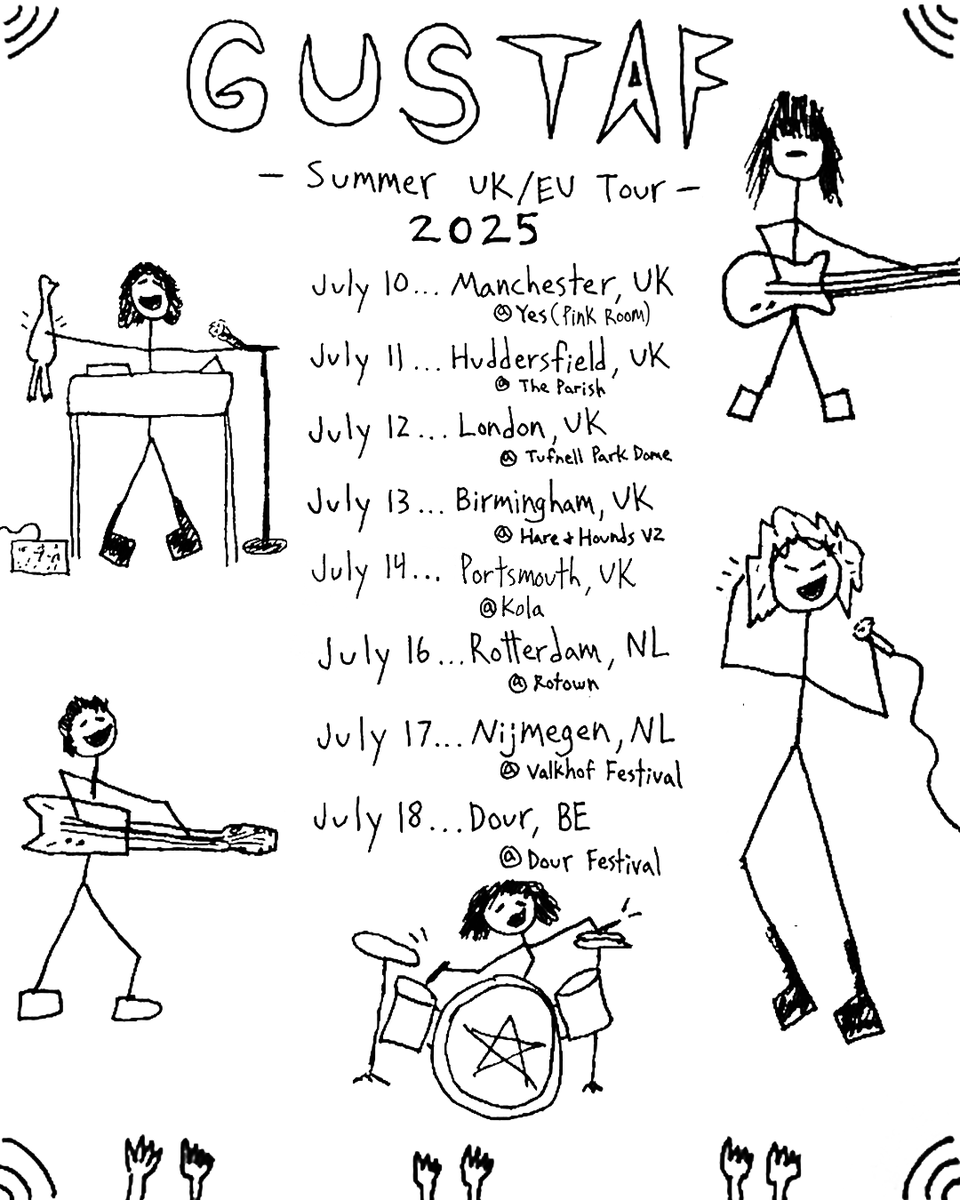 GUSTAF
- Summer UK/EU Tour -
2025
July 10... Manchester, UK
@ Yes (Pink Room)
July 11... Huddersfield, UK
@ The Parish
July 12... London, UK
@ Tufnell Park Dome
July 13... Birmingham, UK
@ Hare & Hounds V2
July 14... Portsmouth, UK
@ Kola
July 16... Rotterdam, NL
@ Rotown
July 17... Nijmegen, NL
@ Valkhof Festival
July 18... Dour, BE
@ Dour Festival